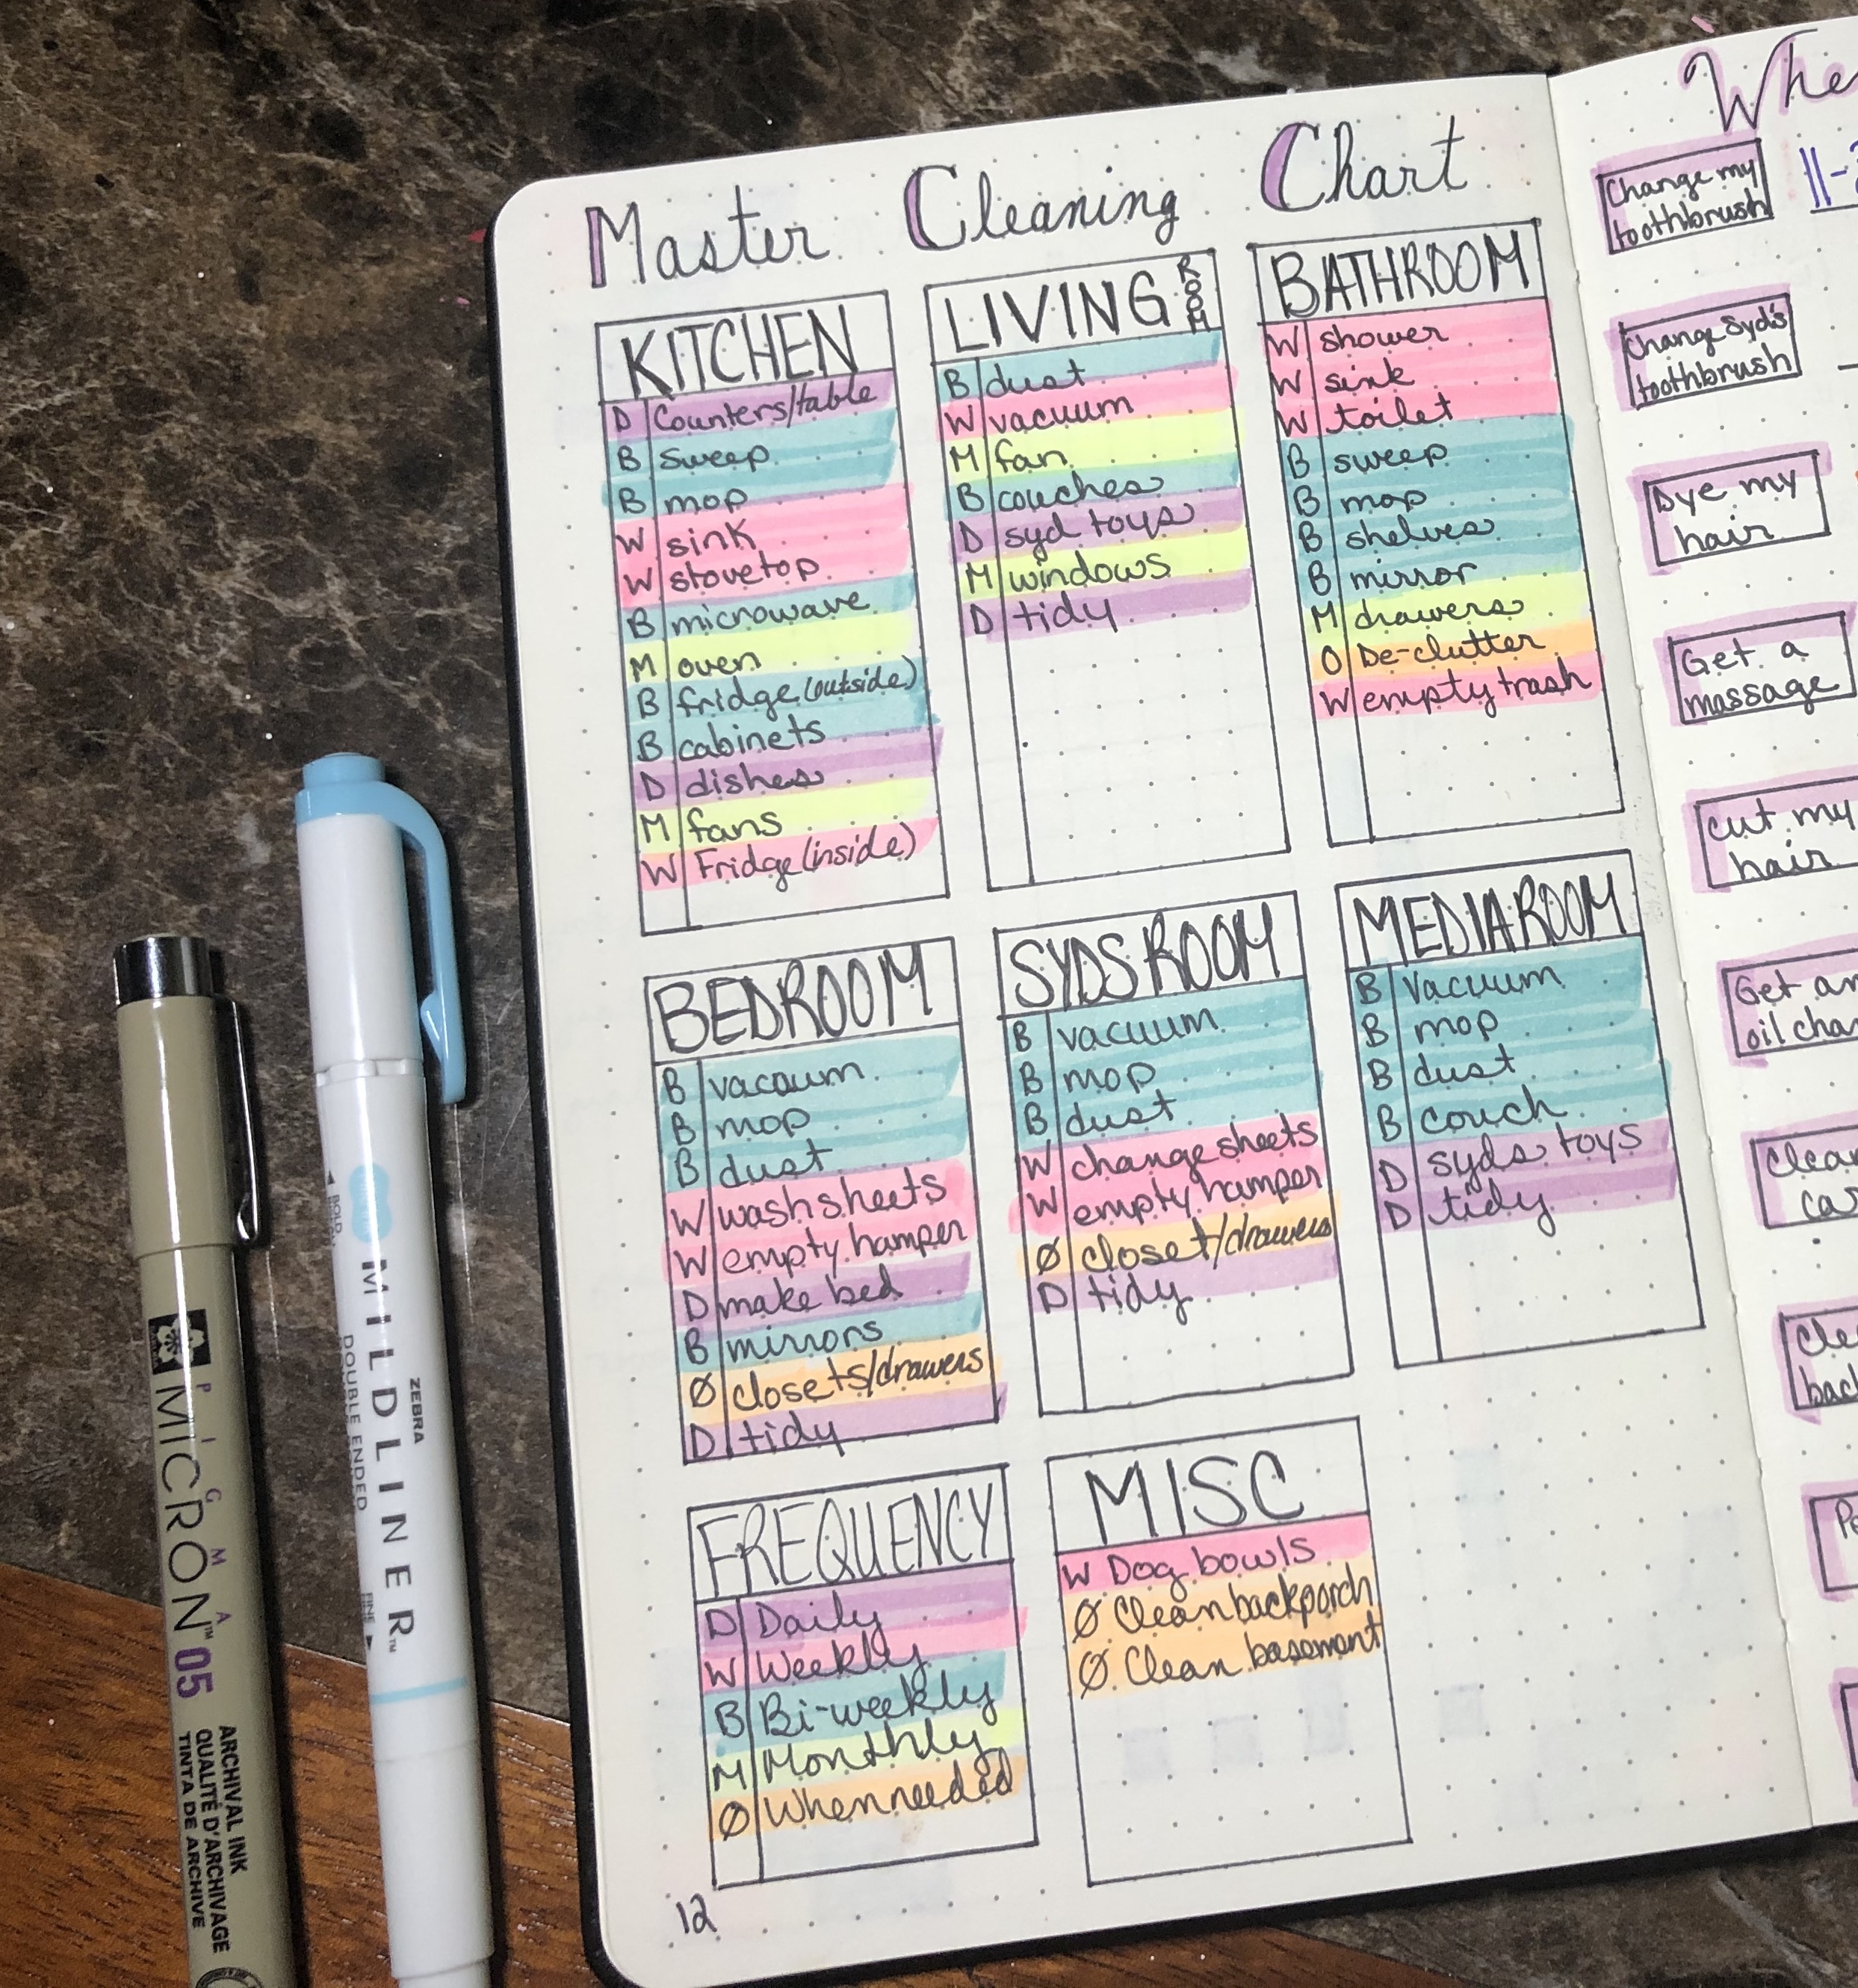 Master Cleaning Chart
KITCHEN
D Counters/table
B sweep
B mop
W sink
W stovetop
B microwave
M oven
B fridge (outside)
B cabinets
D dishes
M fans
W Fridge (inside)
LIVING ROOM
B dust
W vacuum
M fan
B couches
D syd toys
M windows
D tidy
BATHROOM
W shower
W sink
W toilet
B sweep
B mop
B shelves
B mirror
M drawers
O De-clutter
W empty trash
BEDROOM
B vacuum
B mop
B dust
W wash sheets
W empty hamper
D make bed
B mirrors
Ø closets/drawers
D tidy
SYDS ROOM
B vacuum
B mop
B dust
W change sheets
W empty hamper
Ø closet/drawers
D tidy
MEDIA ROOM
B Vacuum
B mop
B dust
B couch
D syds toys
D tidy
FREQUENCY
D Daily
W Weekly
B Bi-weekly
M Monthly
Ø When needed
MISC
W Dog bowls
Ø Clean back porch
Ø Clean basement
12
Change my
toothbrush
Change Syd's
toothbrush
Dye my
hair
Get a
massage
cut my
hair
Get an
oil
PIGMA
MICRON™ 05
ARCHIVAL INK
QUALITÉ D'ARCHIVAGE
TINTA DE ARCHIVE
BOLD
ZEBRA
MILDLINER™
DOUBLE ENDED
FINE